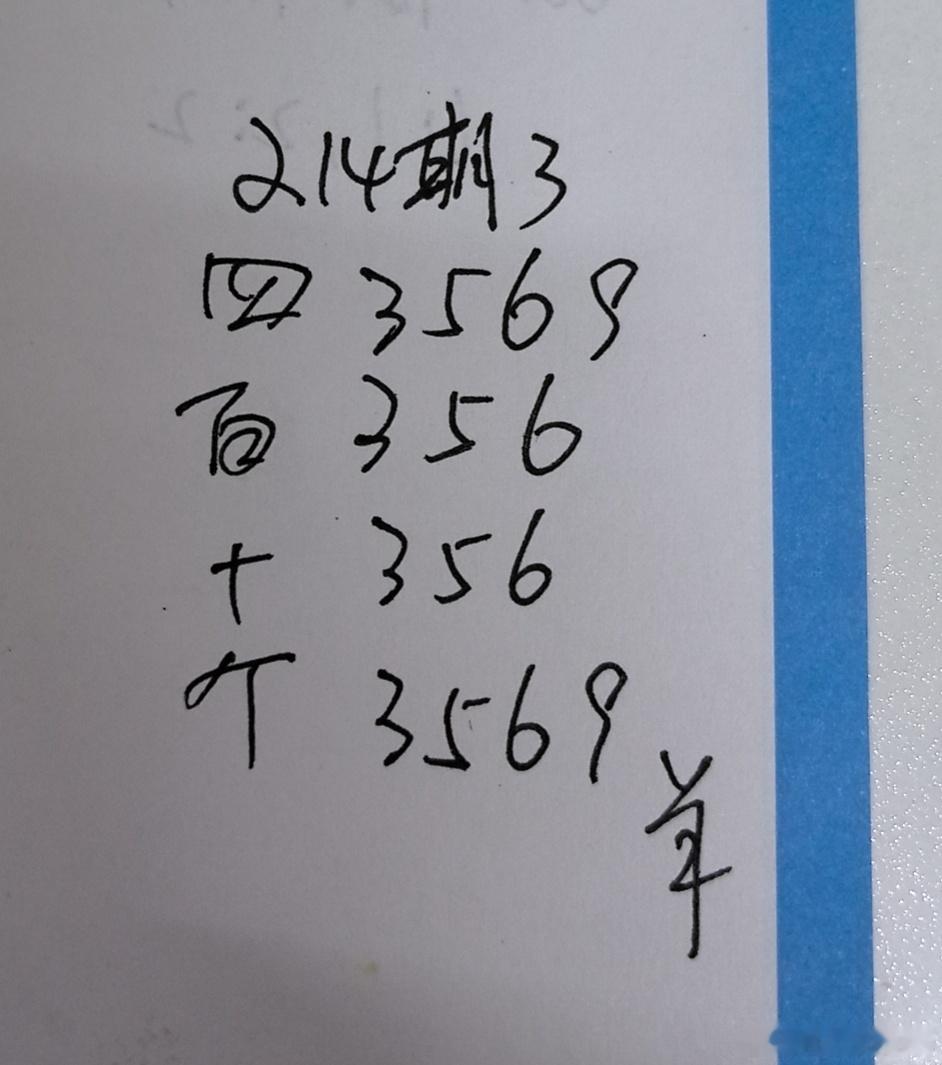 214期3
四 3569
百 356
十 356
个 3569